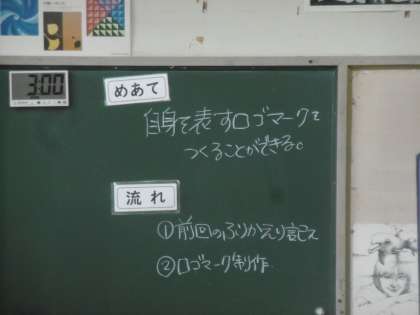 3:00
めあて
自身を表すロゴマークを
つくることができる。
流れ
①前回のふりかえり記入
②ロゴマーク制作